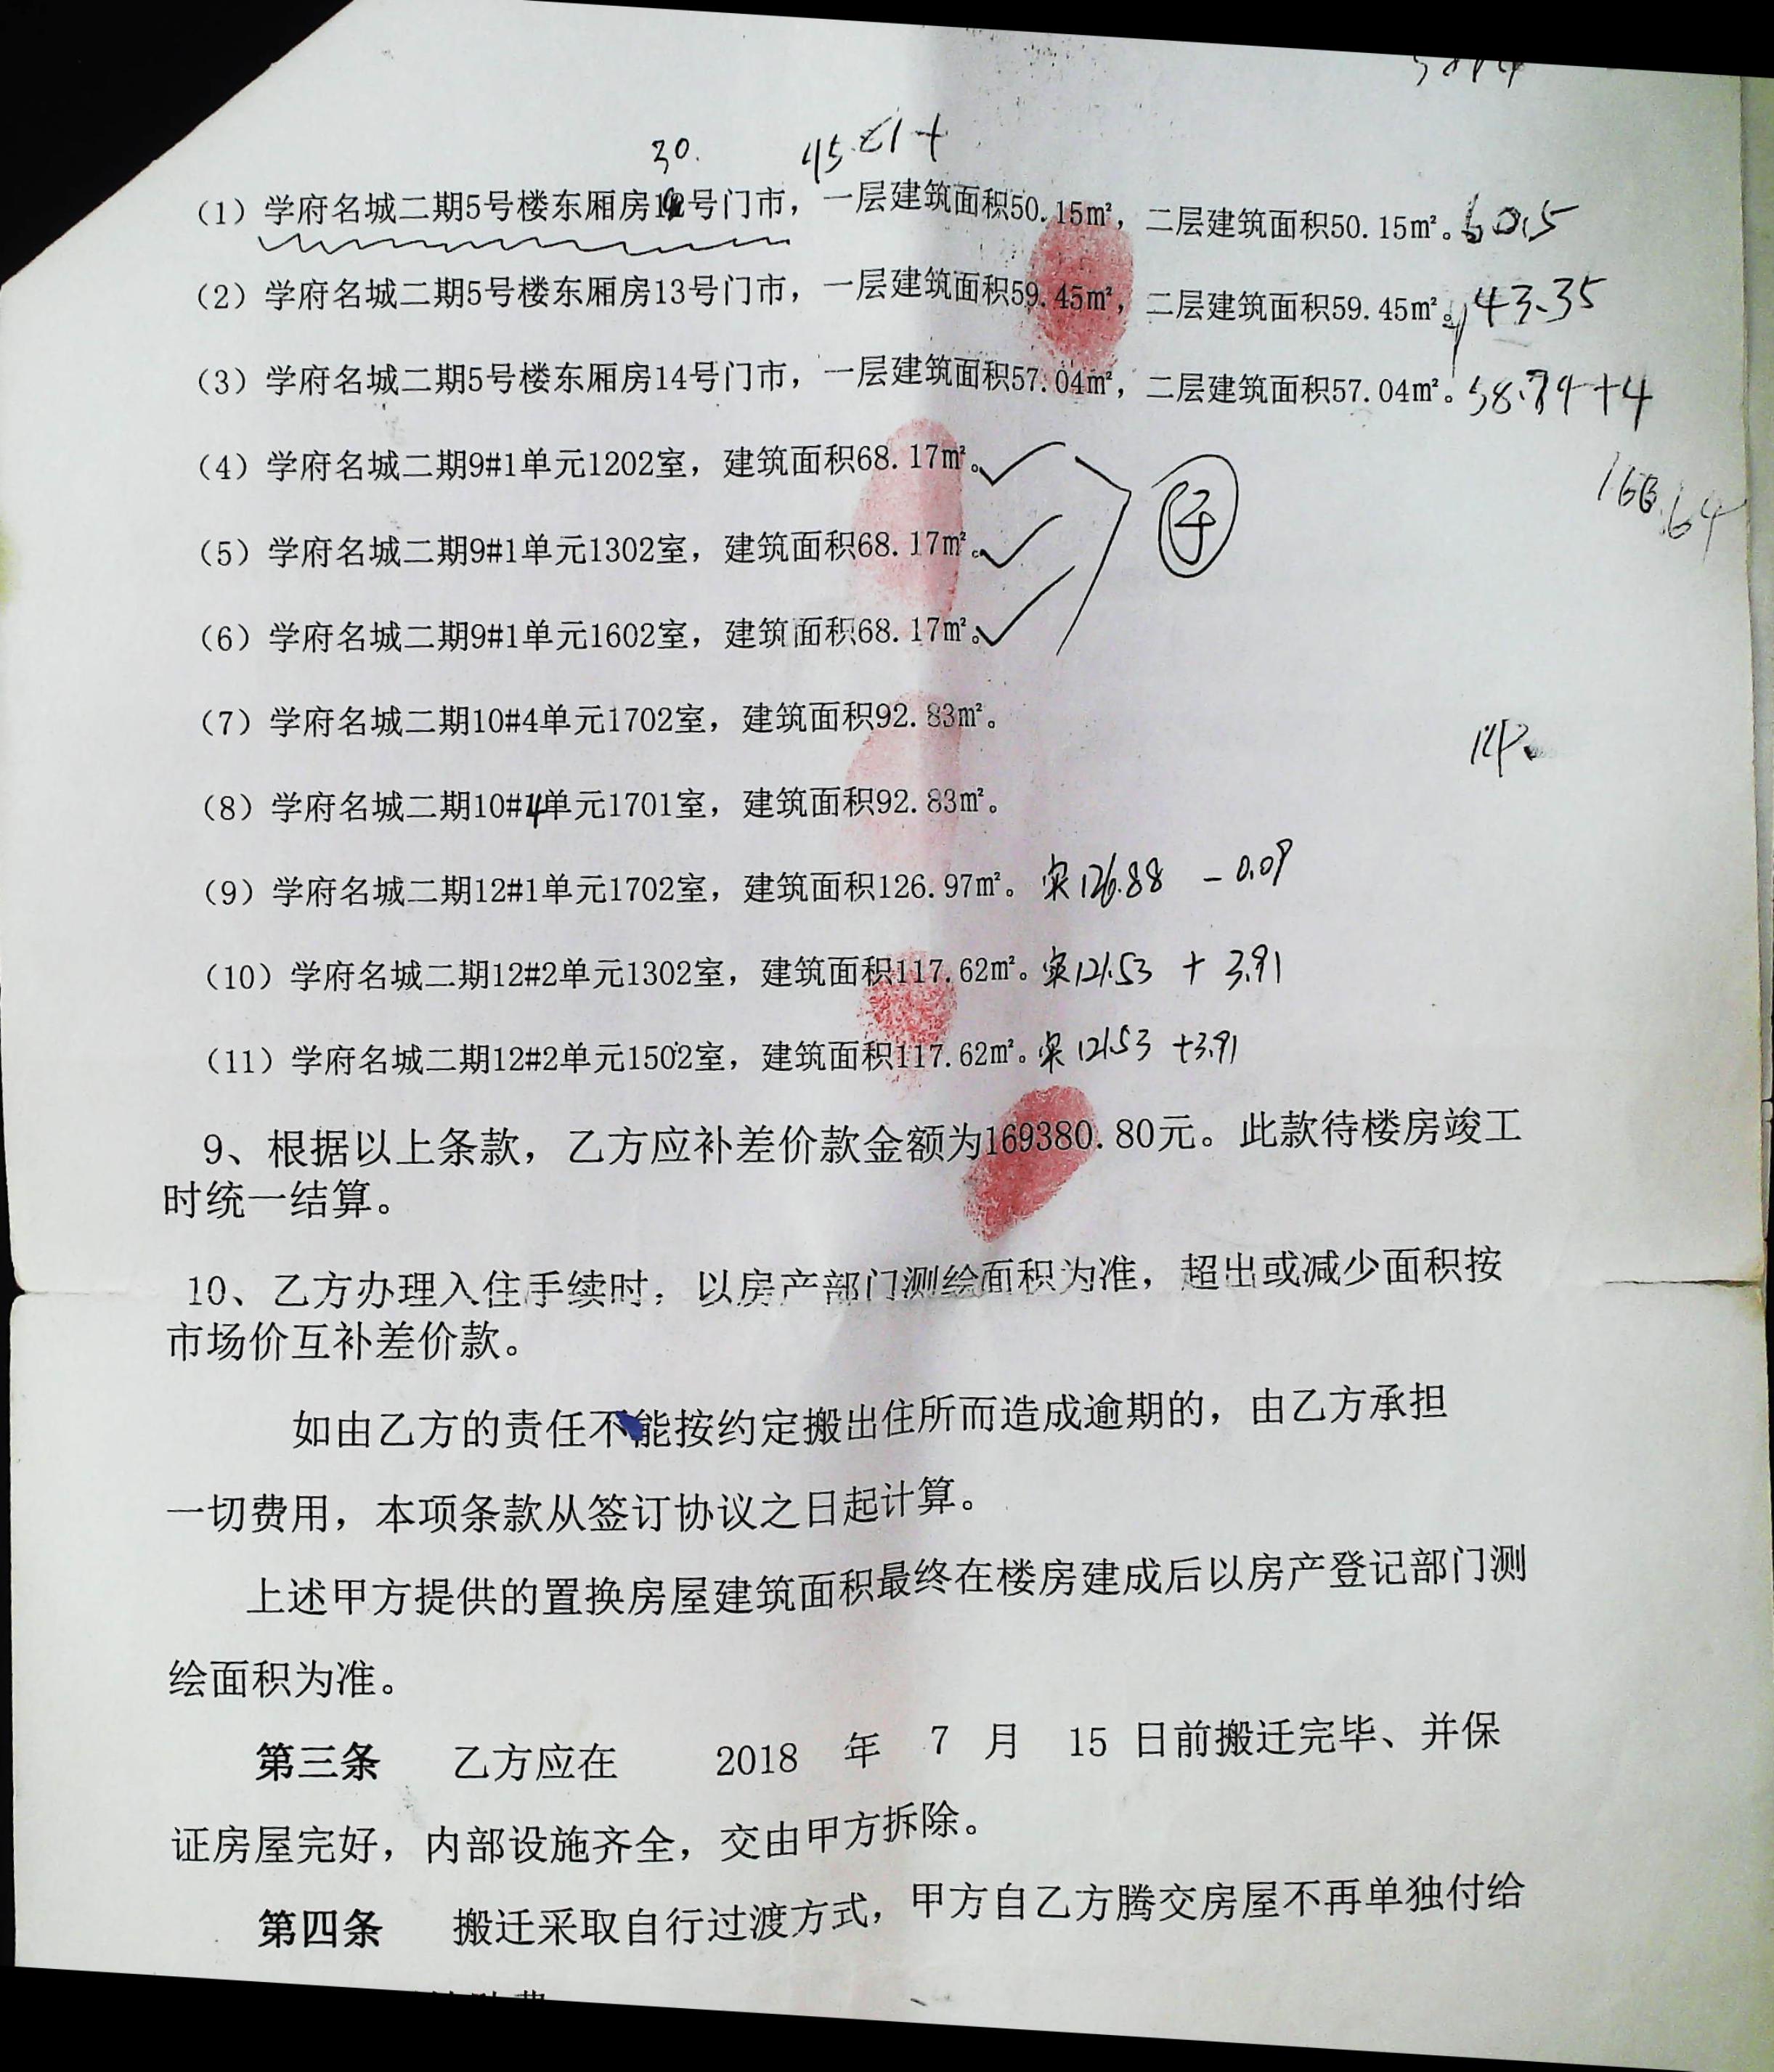 30.
（1）学府名城二期5号楼东厢房12号门市，一层建筑面积50.15㎡，二层建筑面积50.15㎡。60.5
（2）学府名城二期5号楼东厢房13号门市，一层建筑面积59.45㎡，二层建筑面积59.45㎡。43.35
（3）学府名城二期5号楼东厢房14号门市，一层建筑面积57.04㎡，二层建筑面积57.04㎡。58.79+4
（4）学府名城二期9#1单元1202室，建筑面积68.17㎡。
（5）学府名城二期9#1单元1302室，建筑面积68.17㎡。
（6）学府名城二期9#1单元1602室，建筑面积68.17㎡。
（7）学府名城二期10#4单元1702室，建筑面积92.83㎡。
（8）学府名城二期10#4单元1701室，建筑面积92.83㎡。
（9）学府名城二期12#1单元1702室，建筑面积126.97㎡。实126.88 -0.09
（10）学府名城二期12#2单元1302室，建筑面积117.62㎡。实121.53 + 3.91
（11）学府名城二期12#2单元1502室，建筑面积117.62㎡。实121.53 +3.91
9、根据以上条款，乙方应补差价款金额为169380.80元。此款待楼房竣工
时统一结算。
10、乙方办理入住手续时，以房产部门测绘面积为准，超出或减少面积按
市场价互补差价款。
如由乙方的责任不能按约定搬出住所而造成逾期的，由乙方承担
一切费用，本项条款从签订协议之日起计算。
上述甲方提供的置换房屋建筑面积最终在楼房建成后以房产登记部门测
绘面积为准。
第三条 乙方应在 2018 年 7 月 15 日前搬迁完毕、并保
证房屋完好，内部设施齐全，交由甲方拆除。
第四条 搬迁采取自行过渡方式，甲方自乙方腾交房屋不再单独付给